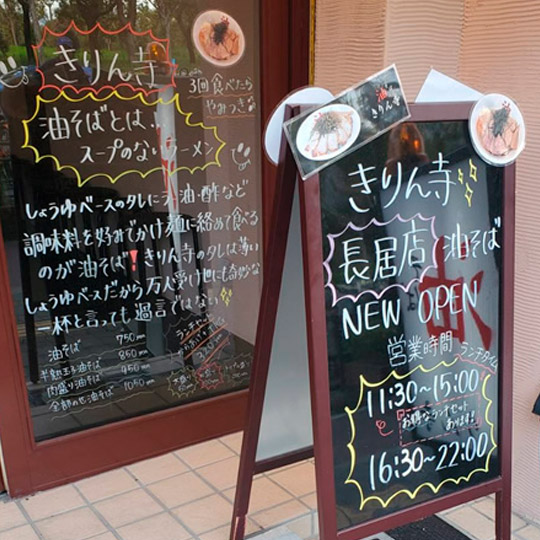 きりん寺
3回食べたら
やみつき
油そばとは、
スープのないラーメン
しょうゆベースのタレにラー油・酢など
調味料を好みでかけ麺に絡めて食べる
のが油そば!きりん寺のタレは薄い
しょうゆベースだから万人受け他にも奇妙な
一杯と言っても過言ではない
油そば 750
半熟玉子油そば 850
肉盛り油そば 950
全部のせ油そば 1050
きりん寺
きりん寺
長居店 油そば
NEW OPEN
営業時間 ランチタイム
11:30~15:00
お得なランチセット
あります!
16:30~22:00